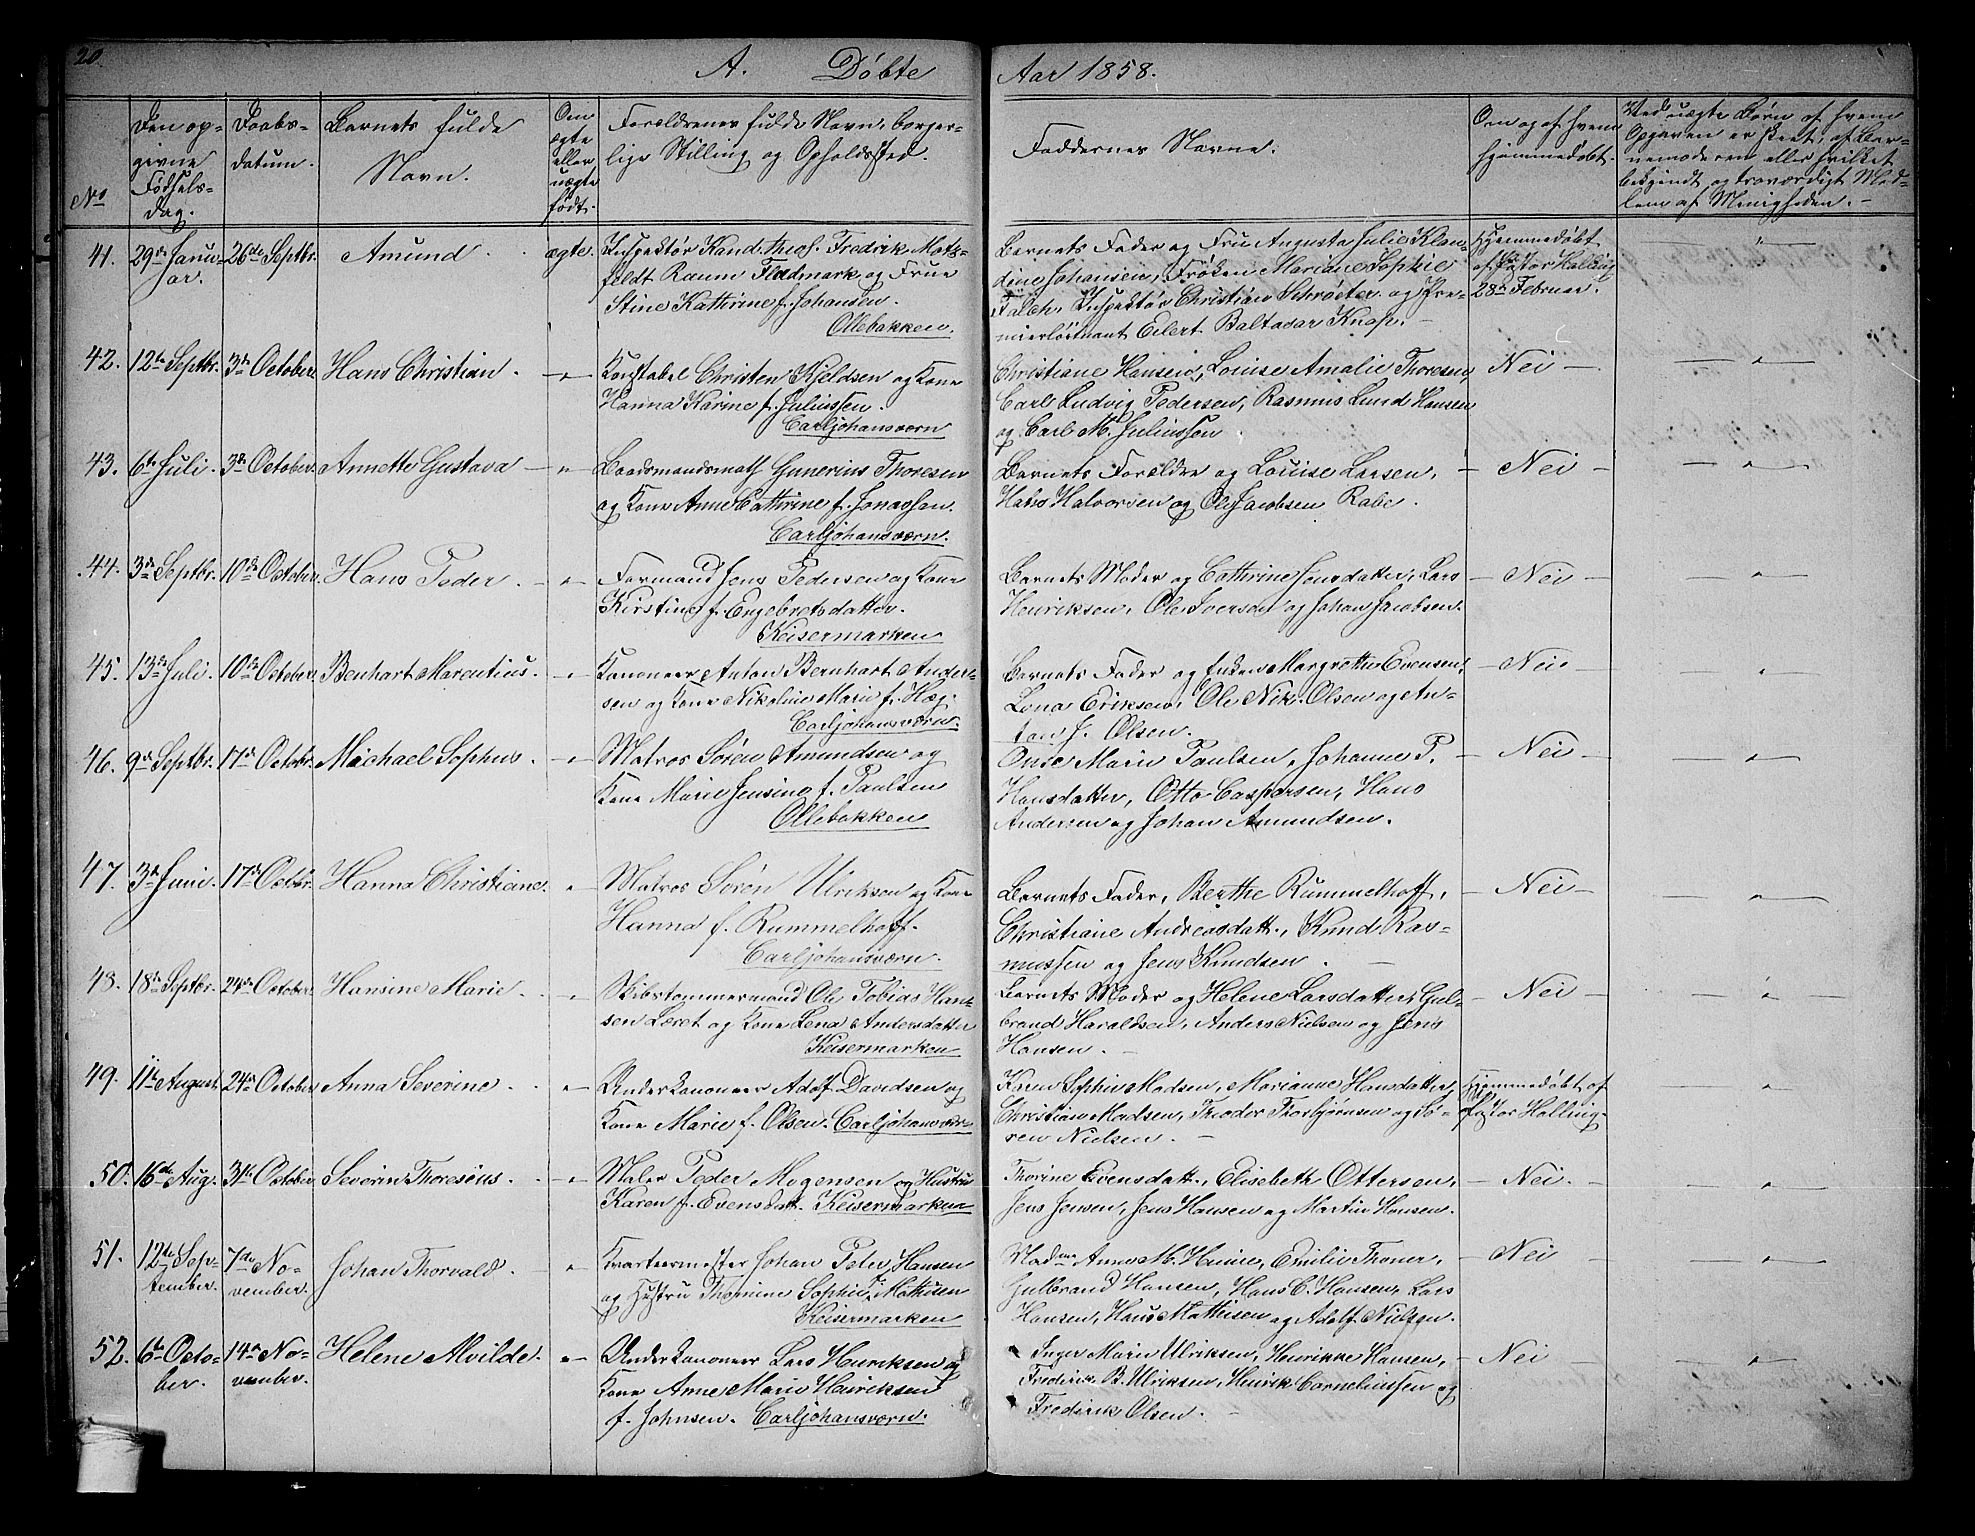 20.
A. Døbte
Aar 1858.
No
Den op-
givne
Fødsels-
dag.
Daabs-
datum.
Barnets fulde
Navn.
Om
ægte
eller
uægte
født.
Forældrenes fulde Navn, borger-
lige Stilling og Opholdssted.
Faddernes Navne.
Om og af hvem
hjemmedøbt.
Ved uægte Børn af hvem
Opgaven er skeet, af Bar-
nemoderen eller hvilket
bekjendt og troværdigt Med-
lem af Menigheden. -
41. 29de Januar. 26de Septbr. Amund ægte.
Inspektør Kand. theol. Fredrik Motz-
feldt Raum Fladmark og Frue
Stine Kathrine f. Johansen.
Ollebakken.
Barnets Fader og Fru Augusta Julie Klau-
dine Johansen, Frøken Mariane Sophie
Falch, Inspektør Christian Schrøeter og Pre-
mierløitnant Eilert Baltasar Knap. -
Hjemmedøbt
af Pastor Halling
28de Februar.
42. 12te Septbr. 3de October. Hans Christian. - " -
Konstabel Christen Kjeldsen og Kone
Hanna Karine f. Juliussen.
Carljohansværn
Christiane Hansen, Louise Amalie Thoresen,
Carl Ludvig Pedersen, Rasmus Lund Hansen
og Carl M. Juliussen.
Nei -
43. 6te Juli. 3de October. Annette Gustava - " -
Baadsmandsmath Gunerius Thoresen
og Kone Anne Cathrine f. Jonassen.
Carljohansværn.
Barnets Forældre og Louise Larsen,
Hans Halvorsen og Ole Jacobsen Rabe.
- Nei -
44. 3de Septbr. 10de October. Hans Peder. - " -
Formand Jens Pedersen og Kone
Kirstine f. Engebretsdatter.
Keisermarken
Barnets Moder og Cathrine Jensdatter, Lars
Henriksen, Ole Iversen og Johan Jacobsen.
- Nei -
45. 13de Juli. 10de October. Benhart Marentius. - " -
Kanoneer Anton Bernhart Ander-
sen og Kone Nikoline Marie f. Hæg.
Carljohansværn.
Barnets Fader og Enken Margrethe Evensen,
Lena Eriksen, Ole Nik. Olsen og An-
ton J. Olsen.
- Nei -
46. 9de Septbr. 17de Octobr. Michael Sophus. - " -
Matros Søren Amundsen og
Kone Marie Jensine f. Paulsen
Ollebakken
Onse Marie Paulsen, Johanne P.
Hansdatter, Otto Caspersen, Hans
Andersen og Johan Amundsen.
- Nei -
47. 3de Juni. 17de Octbr. Hanna Christiane. " -
Matros Søren Ulriksen og Kone
Hanna f. Rummelhoff.
Carljohansværn.
Barnets Fader, Berthe Rummelhoff,
Christiane Andreasdatt., Knud Ras-
mussen og Jens Knudsen. -
- Nei -
48. 18de Septbr. 24de October. Hansine Marie. - " -
Skibstømmermand Ole Tobias Han-
sen Læret og Kone Lena Andersdatter
Keisermarken
Barnets Moder og Helene Larsdatter, Gul-
brand Haraldsen, Anders Nielsen og Jens
Hansen. -
- Nei -
49. 11te August. 24de October. Anna Severine. - " -
Underkanoneer Adolf Davidsen og
Kone Marie f. Olsen. Carljohansværn
Karen Sophie Madsen, Marianne Hansdatter,
Christian Madsen, Theodor Thorbjørnsen og Sø-
ren Nielsen. -
Hjemmedøbt af
Pastor Halling.
50. 16de Aug. 31te October. Severin Thoresøus. - " -
Maler Peder Mogensen og Hustru
Karen f. Evensdatt. Keisermarken
Thorine Evensdatt., Elisebeth Ottersen,
Jens Jensen, Jens Hansen og Martin Hansen.
- Nei. -
51. 12te September. 7de November. Johan Thorvald. - " -
Kvarteermester Johan Peter Hansen
og Hustru Thomine Sophie f. Mathisen
Keisermarken
Madme Anne M. Huuse, Emilie Thoner,
Gulbrand Hansen, Hans C. Hansen, Lars
Hansen, Hans Mathisen og Adolf Nielsen.
- Nei
52. 6te October. 14de November. Helene Alvilde. " -
Underkanoneer Lars Henriksen og
Kone Anne Marie Henriksen
f. Johnsen. Carljohansværn.
Inger Marie Ulriksen, Henrikke Hansen,
Fredrik B. Ulriksen, Henrik Corneliussen og
Fredrik Olsen. -
- Nei -